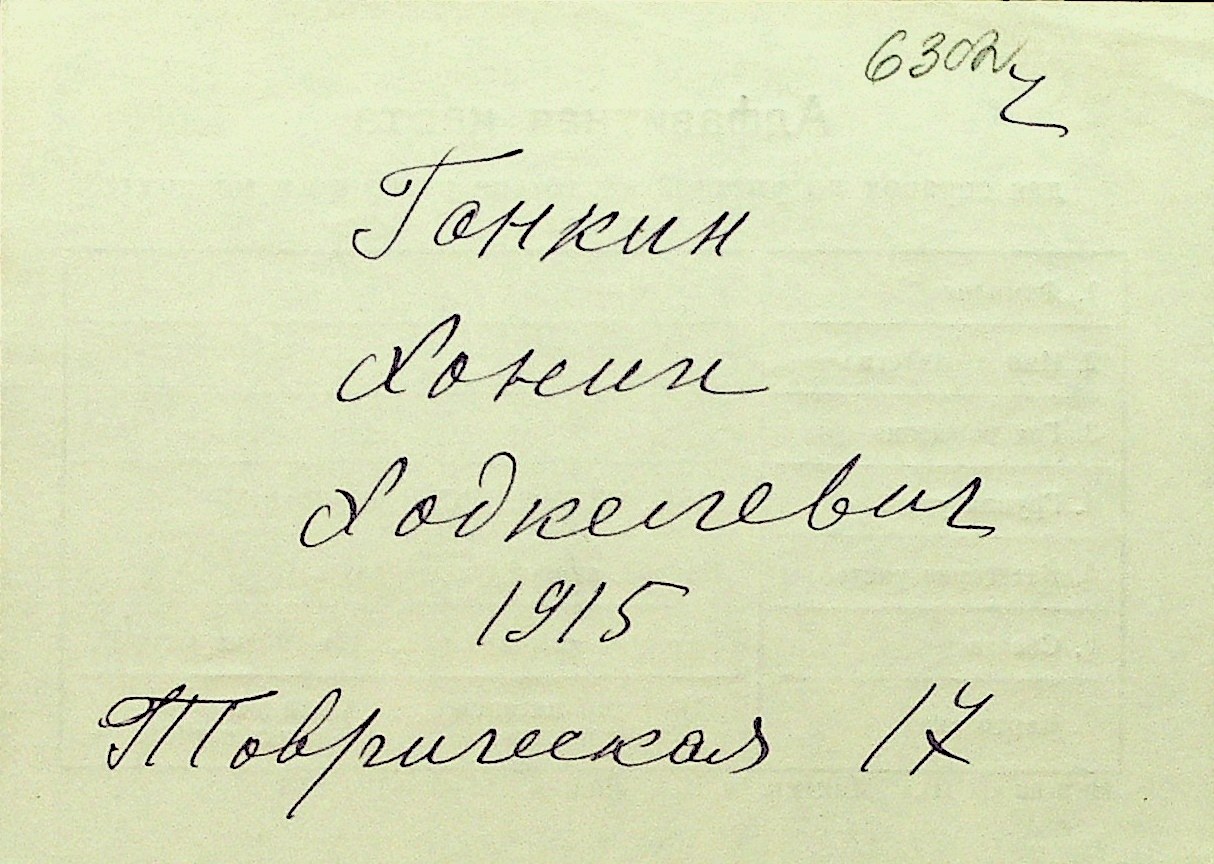 6302
Гонкин
Хонин
Ходкелевич
1915
Товрическая 17